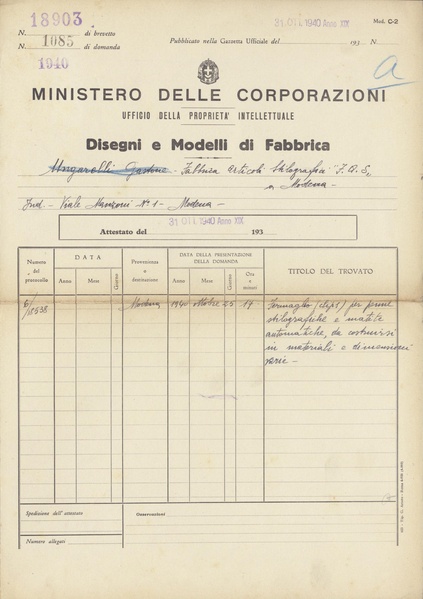 18903
31 OTT. 1940 Anno XIX
Mod. C-2
N. di brevetto
1085
N. di domanda
Pubblicato nella Gazzetta Ufficiale del 193 N.
1940
a
MINISTERO DELLE CORPORAZIONI
UFFICIO DELLA PROPRIETA' INTELLETTUALE
Disegni e Modelli di Fabbrica
Ungarelli Gastone - Fabbrica articoli stilografici "F.A.S."
a Modena -
Ind. - Viale Manzoni Nº 1 - Modena -
31 OTT. 1940 Anno XIX
Attestato del 193
Numero del processello
DATA
Anno Mese Giorno
Provenienza o destinazione
DATA DELLA PRESENTAZIONE DELLA DOMANDA
Anno Mese Giorno
Ora e minuti
TITOLO DEL TROVATO
6/18538 Modena 1940 ottobre 25 17
Fermaglio (clips) per penne
stilografiche e matite
automatiche, da costruirsi
in materiali e dimensioni
varie -
Spedizione dell'attestato
Osservazioni
Numero allegati